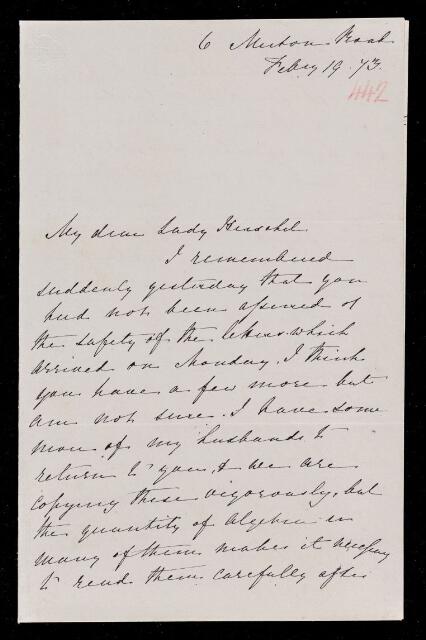 6 Merton Road
Febry 19. 73.
442
My dear Lady Herschel
I remembered
suddenly yesterday that you
had not been assured of
the safety of the letters which
arrived on Monday. I think
you have a few more but
am not sure. I have some
more of my husbands to
return to you, & we are
copying these vigorously, but
the quantity of Algebra in
many of them makes it necessary
to read them carefully after